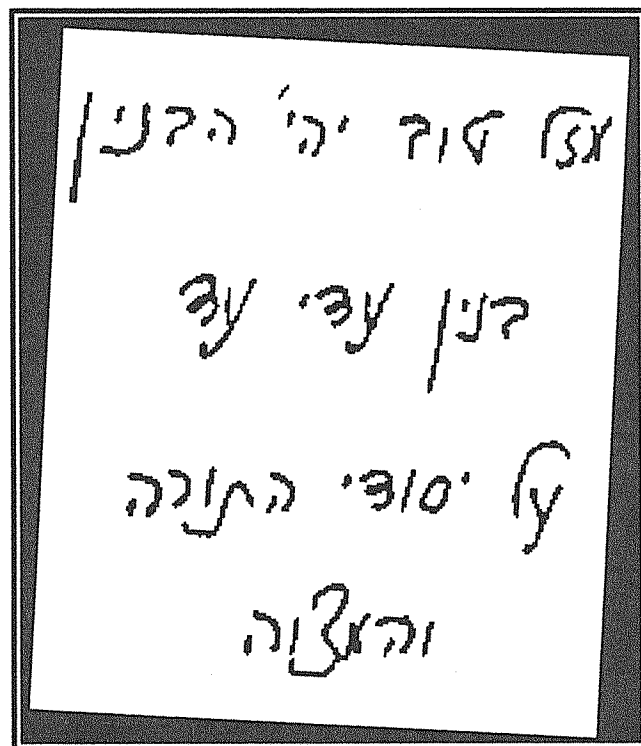 מזל טוב יהי' הבנין
בנין עדי עד
על יסודי התורה
והמצוה